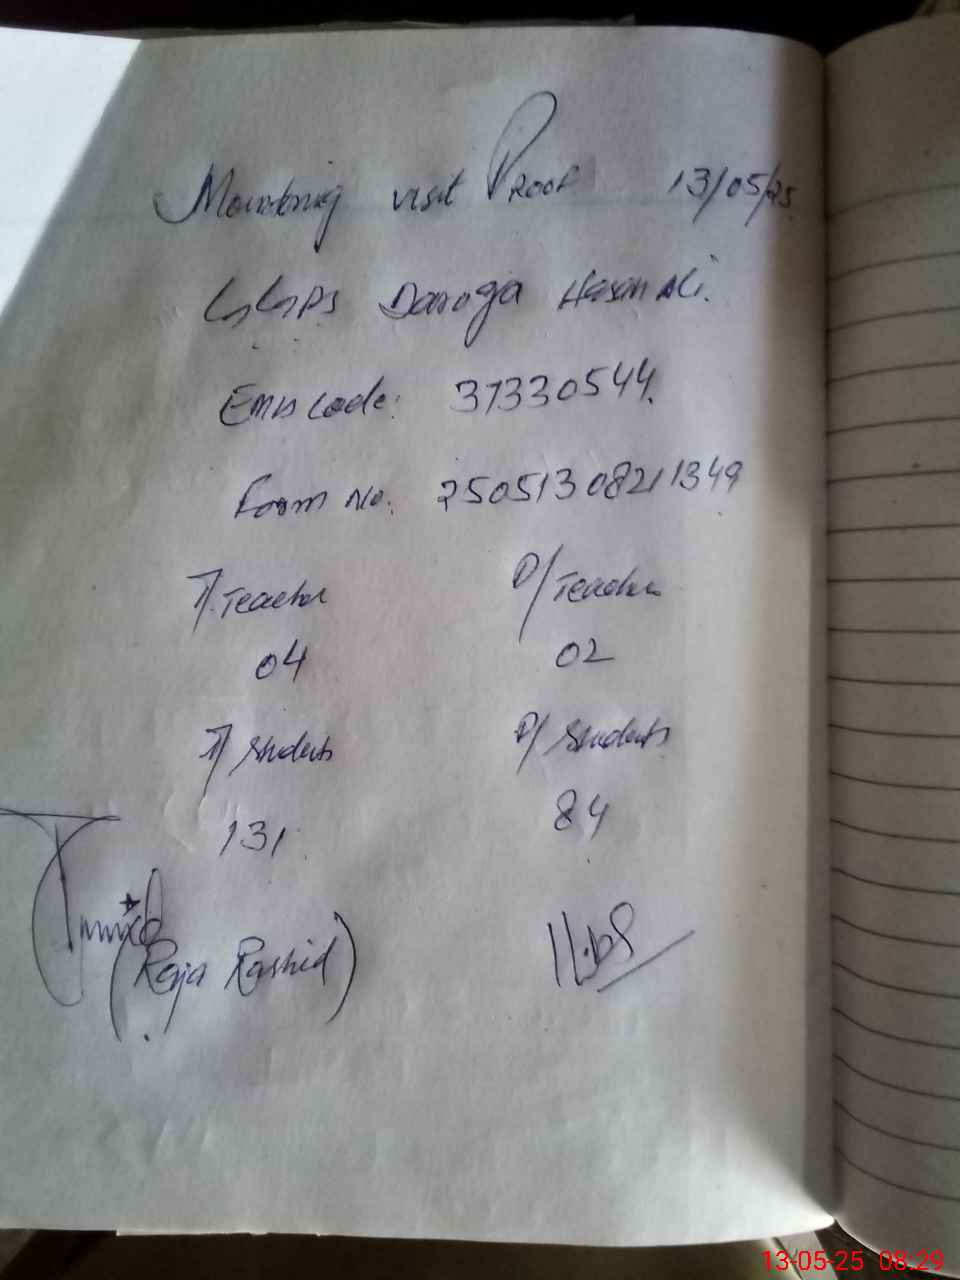 Monitoring visit Proof 13/05/25
GGPS Daroga Hasan Ali.
Emis Code: 37330544.
Form No. 25051308211349
T/Teacher P/Teacher
04 02
T/Students P/Students
131 84
(Raja Rashid)
13-05-25 08:29